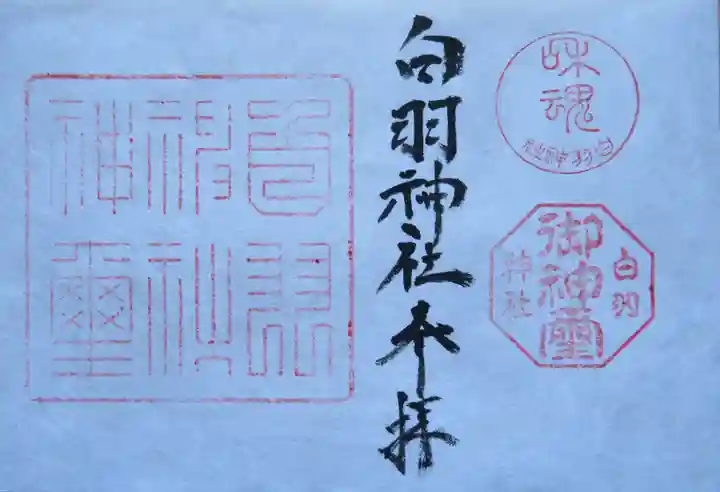 和魂
白羽神社
御神璽
白羽
神社
白羽神社奉拝
白羽
神社
神璽